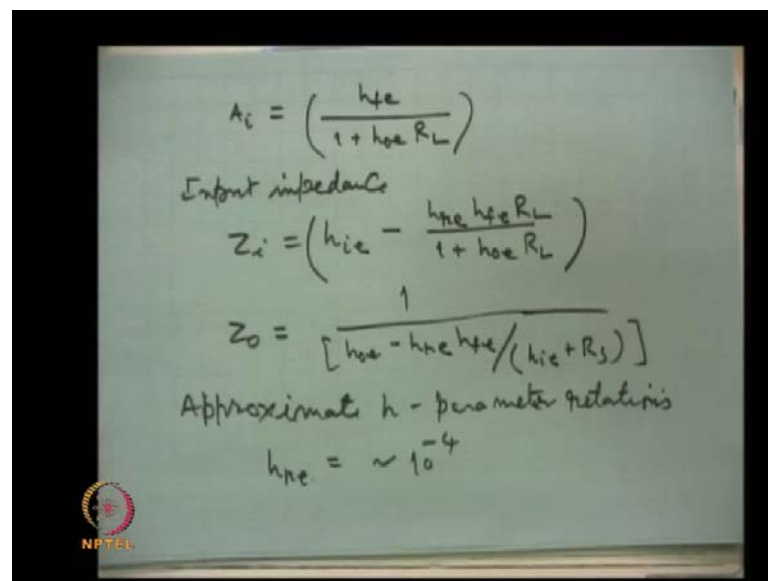 A_i = ( h_fe / (1 + h_oe R_L) )
Input impedance
Z_i = ( h_ie - h_re h_fe R_L / (1 + h_oe R_L) )
Z_o = 1 / [ h_oe - h_re h_fe / (h_ie + R_S) ]
Approximate h - parameter relations
h_re = ~ 10^-4
NPTEL